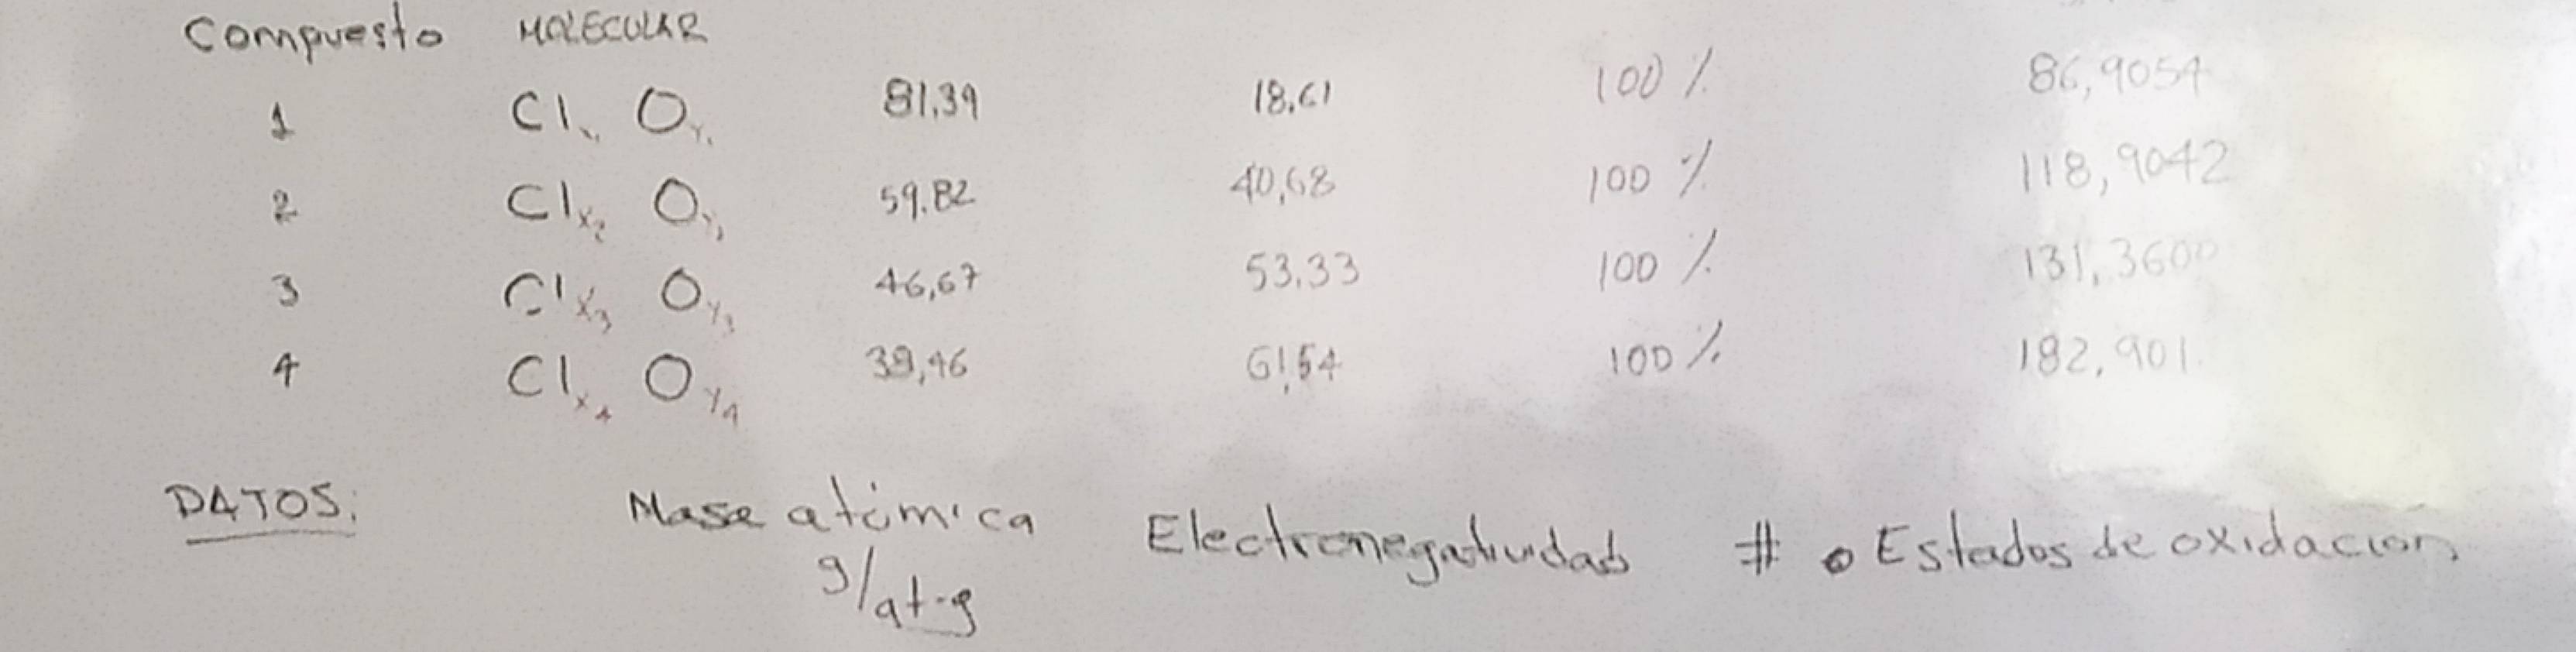 Compuesto MOLECULAR
1 Clx₁ Oy₁ 81,39 18,61 100 % 86,9054
2 Clx₂ Oy₂ 59.82 40,68 100 % 118,9042
3 Clx₃ Oy₃ 46,67 53,33 100 % 131,3600
4 Clx₄ Oy₄ 38,46 61,54 100 % 182,901
DATOS: Masa atómica Electronegatividad # o Estados de oxidacion
g/at-g